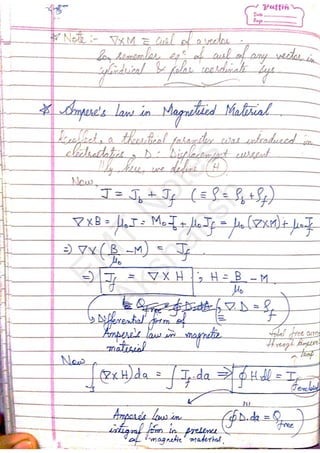 Date
Page
* Note :- ∇×M ≡ curl of a vector.
So, remember eqⁿ of curl of any vector in
cylindrical & polar coordinate sys.
* Ampere's Law in Magnetised Material
Recollect, a theoretical parameter was introduced in
electrostatics, D : Displacement current
"ly here, we define H.
Now,
J = J_b + J_f ( ≡ ρ = ρ_b + ρ_f )
∇×B = μ₀J = μ₀J_b + μ₀J_f = μ₀(∇×M) + μ₀J_f
⇒ ∇×(B/μ₀ - M) = J_f
⇒ J_f = ∇×H ; H = B/μ₀ - M
∇.D = ρ_f
Differential form of
Ampere's law in magnetic
material
total free current
through Amperian
loop
Now
∫(∇×H)da = ∫J_f.da ⇒ ∮H.dl = I_f enclosed
Ampere's Law in
integral form in presence
of magnetic material.
(∮D.da = Q_free)